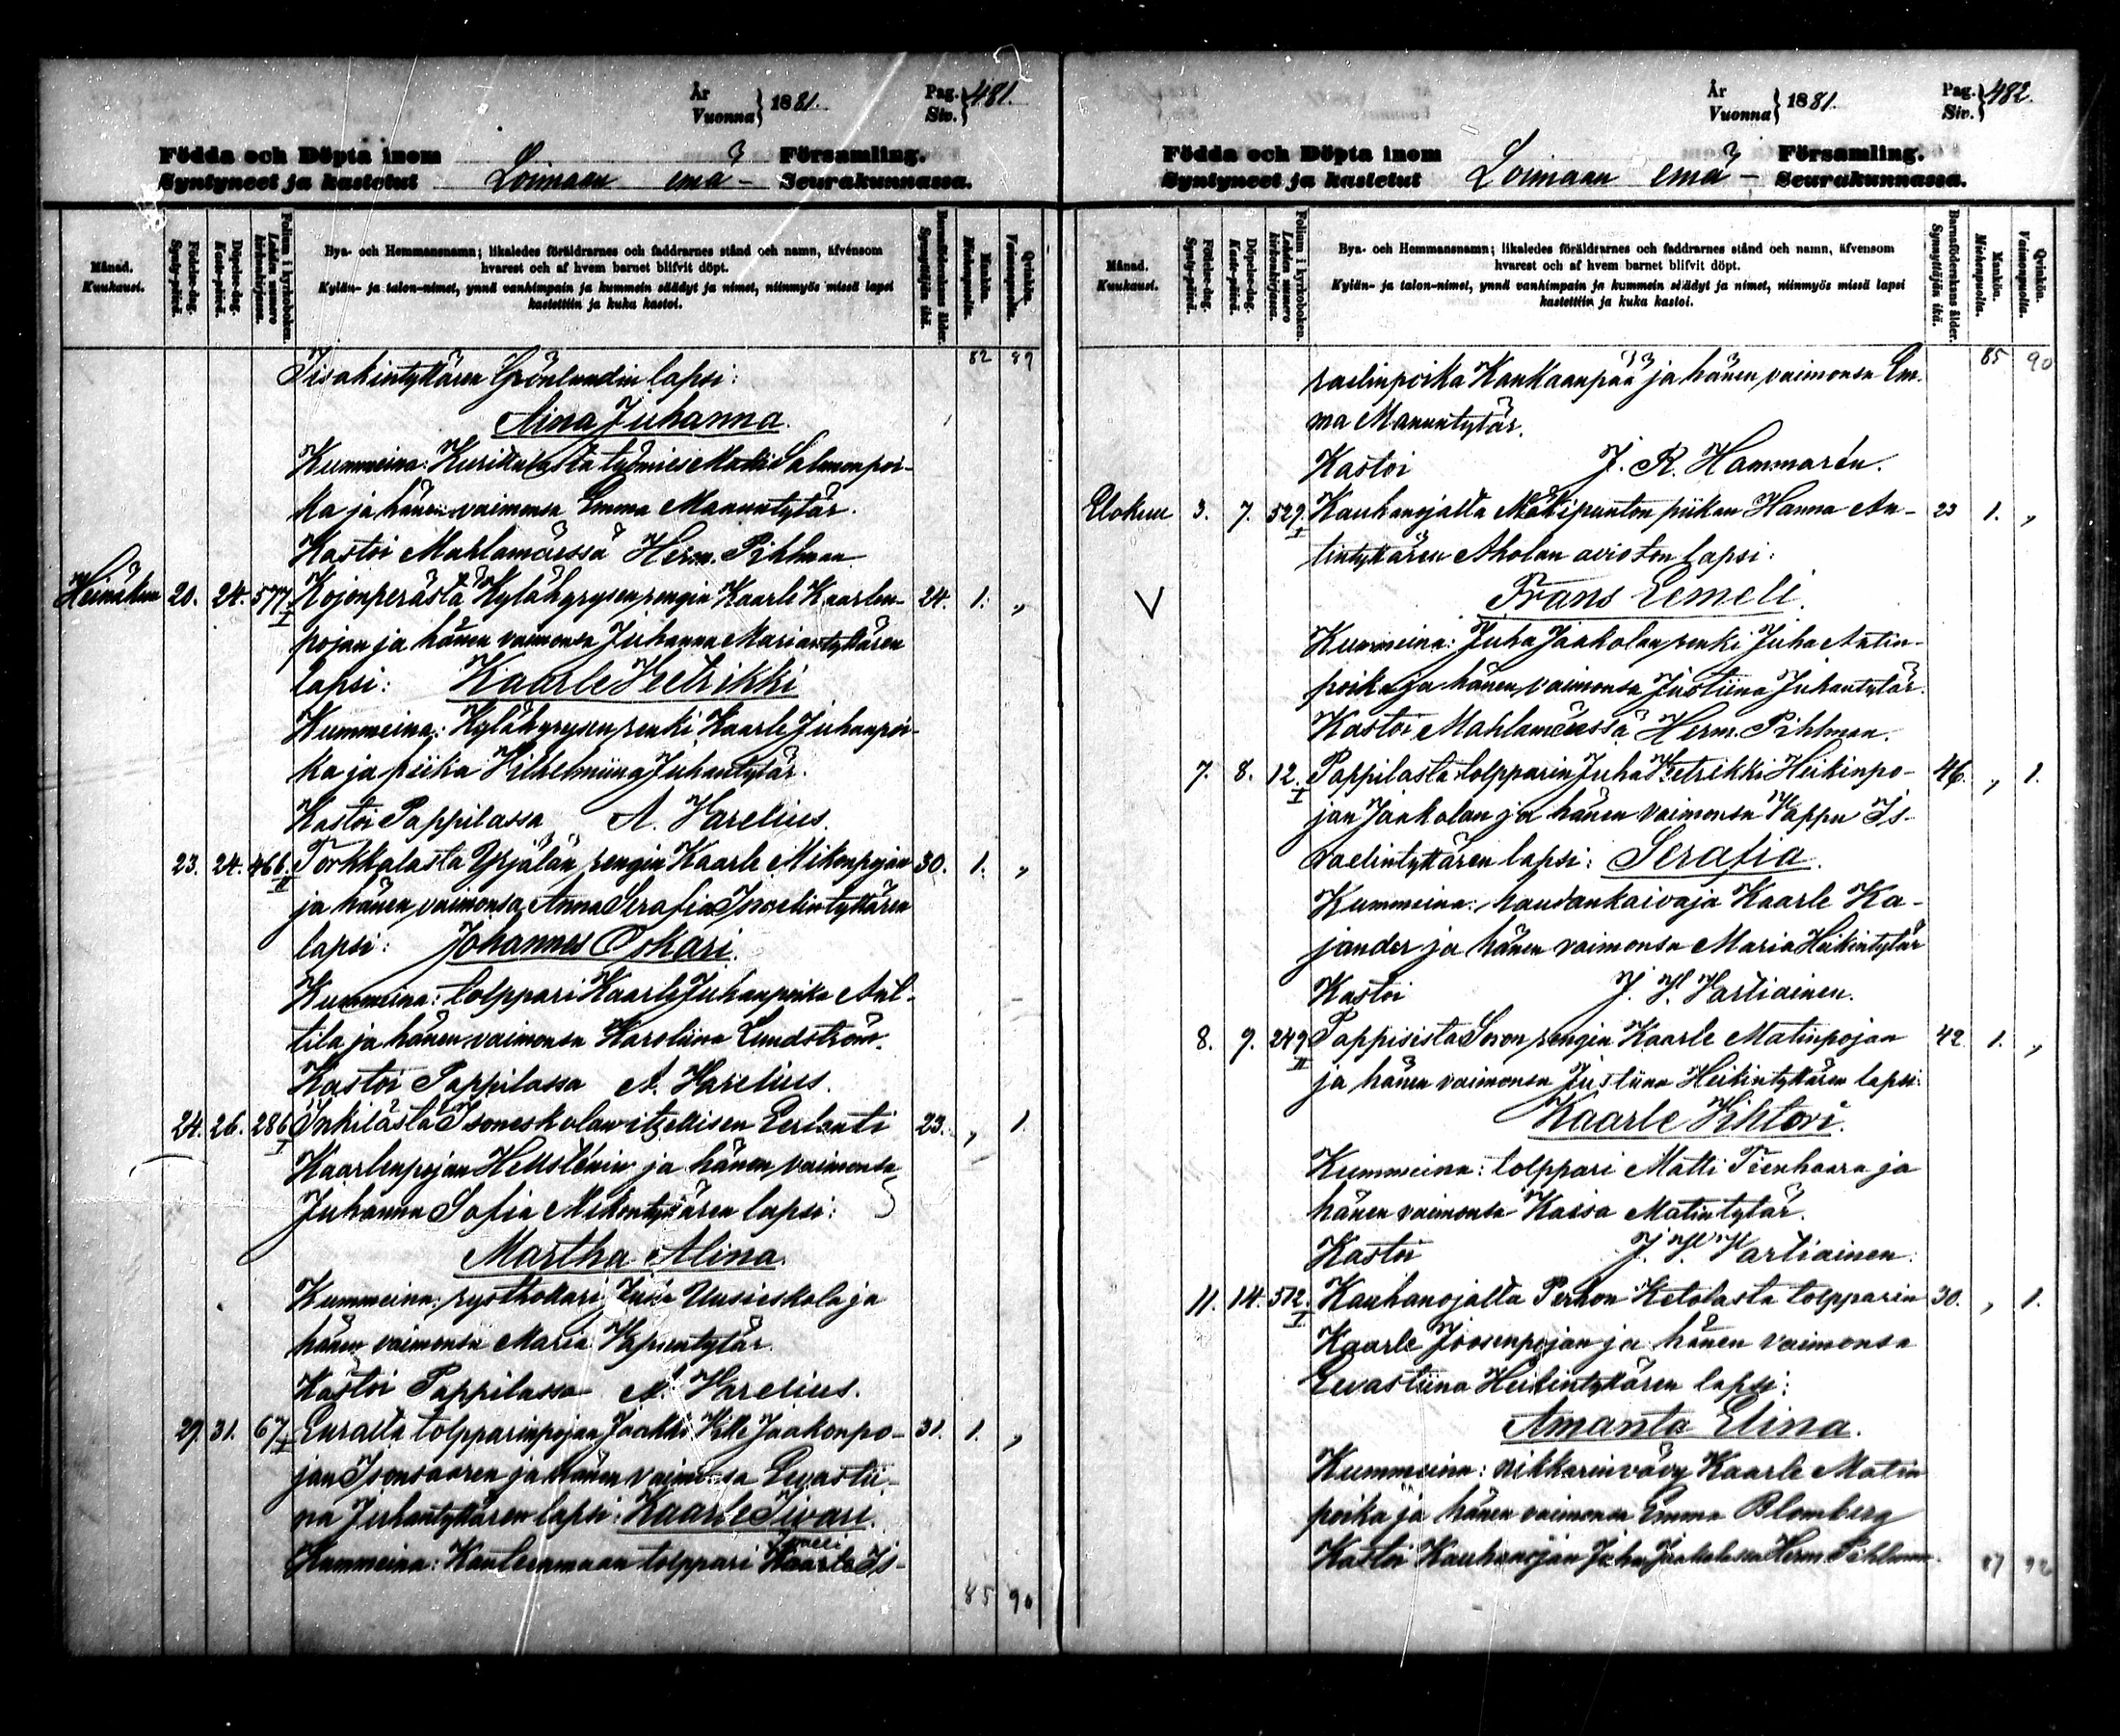 År
Vuonna } 1881.
Pag.
Siv. } 481.
Födda och Döpta inom Församling.
Syntyneet ja kastetut Loimaan emä- Seurakunnassa.
Månad.
Kuukausi.
Födelse-dag.
Synty-päivä.
Döpelse-dag.
Kaste-päivä.
Folium i kyrkoboken.
Lehden numero
kirkonkirjassa.
Bya- och Hemmansnamn; likaledes föräldrarnes och faddrarnes stånd och namn, äfvensom
hvarest och af hvem barnet blifvit döpt.
Kylän- ja talon-nimet, ynnä vanhimpain ja kummein säädyt ja nimet, niinmyös missä lapsi
kastettiin ja kuka kastoi.
Barnföderskans ålder.
Synnyttäjän ikä.
Mankön.
Miehenpuolia.
Qvinkön.
Vaimonpuolia.
82 89
Iisakintyttären Grönlundin lapsi:
Aina Juhanna.
Kummeina: työmies Matti Salmonpoi-
ka ja hänen vaimonsa Emma Manuntytär.
Kastoi Mahlamäessä Herm. Pihlman
Heinäkuu 20. 24. 577 I Kojonperästä Kylähyrysen rengin Kaarle Kaarlen- 24. 1. „
pojan ja hänen vaimonsa Juhanna Mariantyttären
lapsi: Kaarle Hetrikki
Kummeina: Kylähyrysen renki Kaarle Juhanpoi-
ka ja piika Vilhelmiina Juhantytär.
Kastoi Pappilassa A. Varelius.
23. 24. 466. II Torkkalasta Yrjälän rengin Kaarle Mikonpojan 30. 1. „
ja hänen vaimonsa Anna Serafia Israelintyttären
lapsi: Johannes Oskari.
Kummeina: tolppari Kaarle Juhanpoika Ant-
tila ja hänen vaimonsa Karoliina Lundström.
Kastoi Pappilassa A. Varelius.
24. 26. 286 I Inkilästä Isoneskolan itsellisen Erlanti 23. „ 1.
Kaarlenpojan Hellsténin ja hänen vaimonsa
Juhanna Sofia Mikontyttären lapsi:
Martha Alina.
Kummeina: rysthollari Juha Uusieskola ja
hänen vaimonsa Maria Vapuntytär.
Kastoi Pappilassa A. Varelius.
29. 31. 67. I Eurasta tolpparinpojan Jaakko Ville Jaakonpo- 31. 1. „
jan Isonsaaren ja hänen vaimonsa Evastii-
na Juhantyttären lapsi: Kaarle Iivari.
Kummeina: Kanteenmaan tolppari Kaarle Is-
85 90
År
Vuonna } 1881.
Pag.
Siv. } 482.
Födda och Döpta inom Församling.
Syntyneet ja kastetut Loimaan emä- Seurakunnassa.
Månad.
Kuukausi.
Födelse-dag.
Synty-päivä.
Döpelse-dag.
Kaste-päivä.
Folium i kyrkoboken.
Lehden numero
kirkonkirjassa.
Bya- och Hemmansnamn; likaledes föräldrarnes och faddrarnes stånd och namn, äfvensom
hvarest och af hvem barnet blifvit döpt.
Kylän- ja talon-nimet, ynnä vanhimpain ja kummein säädyt ja nimet, niinmyös missä lapsi
kastettiin ja kuka kastoi.
Barnföderskans ålder.
Synnyttäjän ikä.
Mankön.
Miehenpuolia.
Qvinkön.
Vaimonpuolia.
85 90
raelinpoika Kankaanpää ja hänen vaimonsa Em-
ma Manuntytär.
Kastoi J. R. Hammarén.
Elokuu 3. 7. 529. I Kauhanojalta Mäkipunton piikan Hanna An- 23 1. „
tintyttären Aholan avioton lapsi:
Frans Eemeli.
Kummeina: Juha Jaakolan renki Juha Antin-
poika ja hänen vaimonsa Justiina Juhantytär.
Kastoi Mahlamäessä Herm. Pihlman.
7. 8. 12. I Pappilasta tolpparin Juha Hetrikki Heikinpo- 46. „ 1.
jan Jaakolan ja hänen vaimonsa Vappu Is-
raelintyttären lapsi: Serafia.
Kummeina: haudankaivaja Kaarle Ka-
jander ja hänen vaimonsa Maria Heikintytär
Kastoi J. V. Vartiainen.
8. 9. 249 II Pappisista Soron rengin Kaarle Matinpojan 42 1. „
ja hänen vaimonsa Justiina Heikintyttären lapsi:
Kaarle Vihtori.
Kummeina: tolppari Matti Tienhaara ja
hänen vaimonsa Kaisa Matintytär.
Kastoi J. V. Vartiainen.
11. 14. 572. I Kauhanojalta Perhon Ketolasta tolpparin 30. „ 1.
Kaarle Joosenpojan ja hänen vaimonsa
Evastiina Heikintyttären lapsi:
Amanta Elina.
Kummeina: nikkarinvävy Kaarle Matin
poika ja hänen vaimonsa Emma Blomberg
Kastoi Kauhanojan Juha Jaakolassa Herm. Pihlman.
87 92